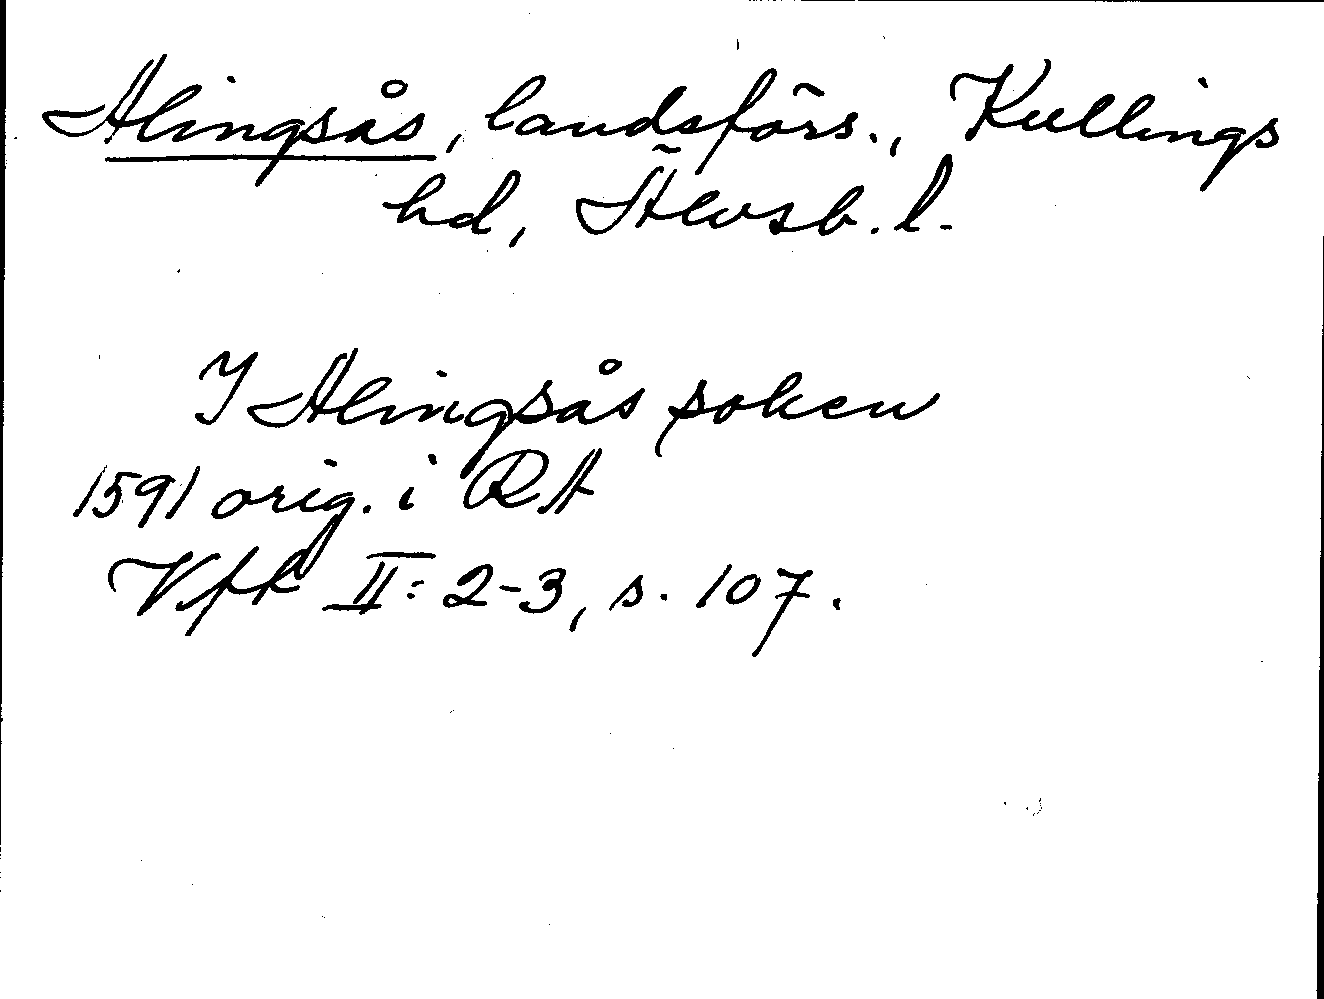 Alingsås, landsförs., Kullings
hd, Älvsb. l.
I Alingsås soken
1591 orig. i RA
Vfk II: 2-3, s. 107.